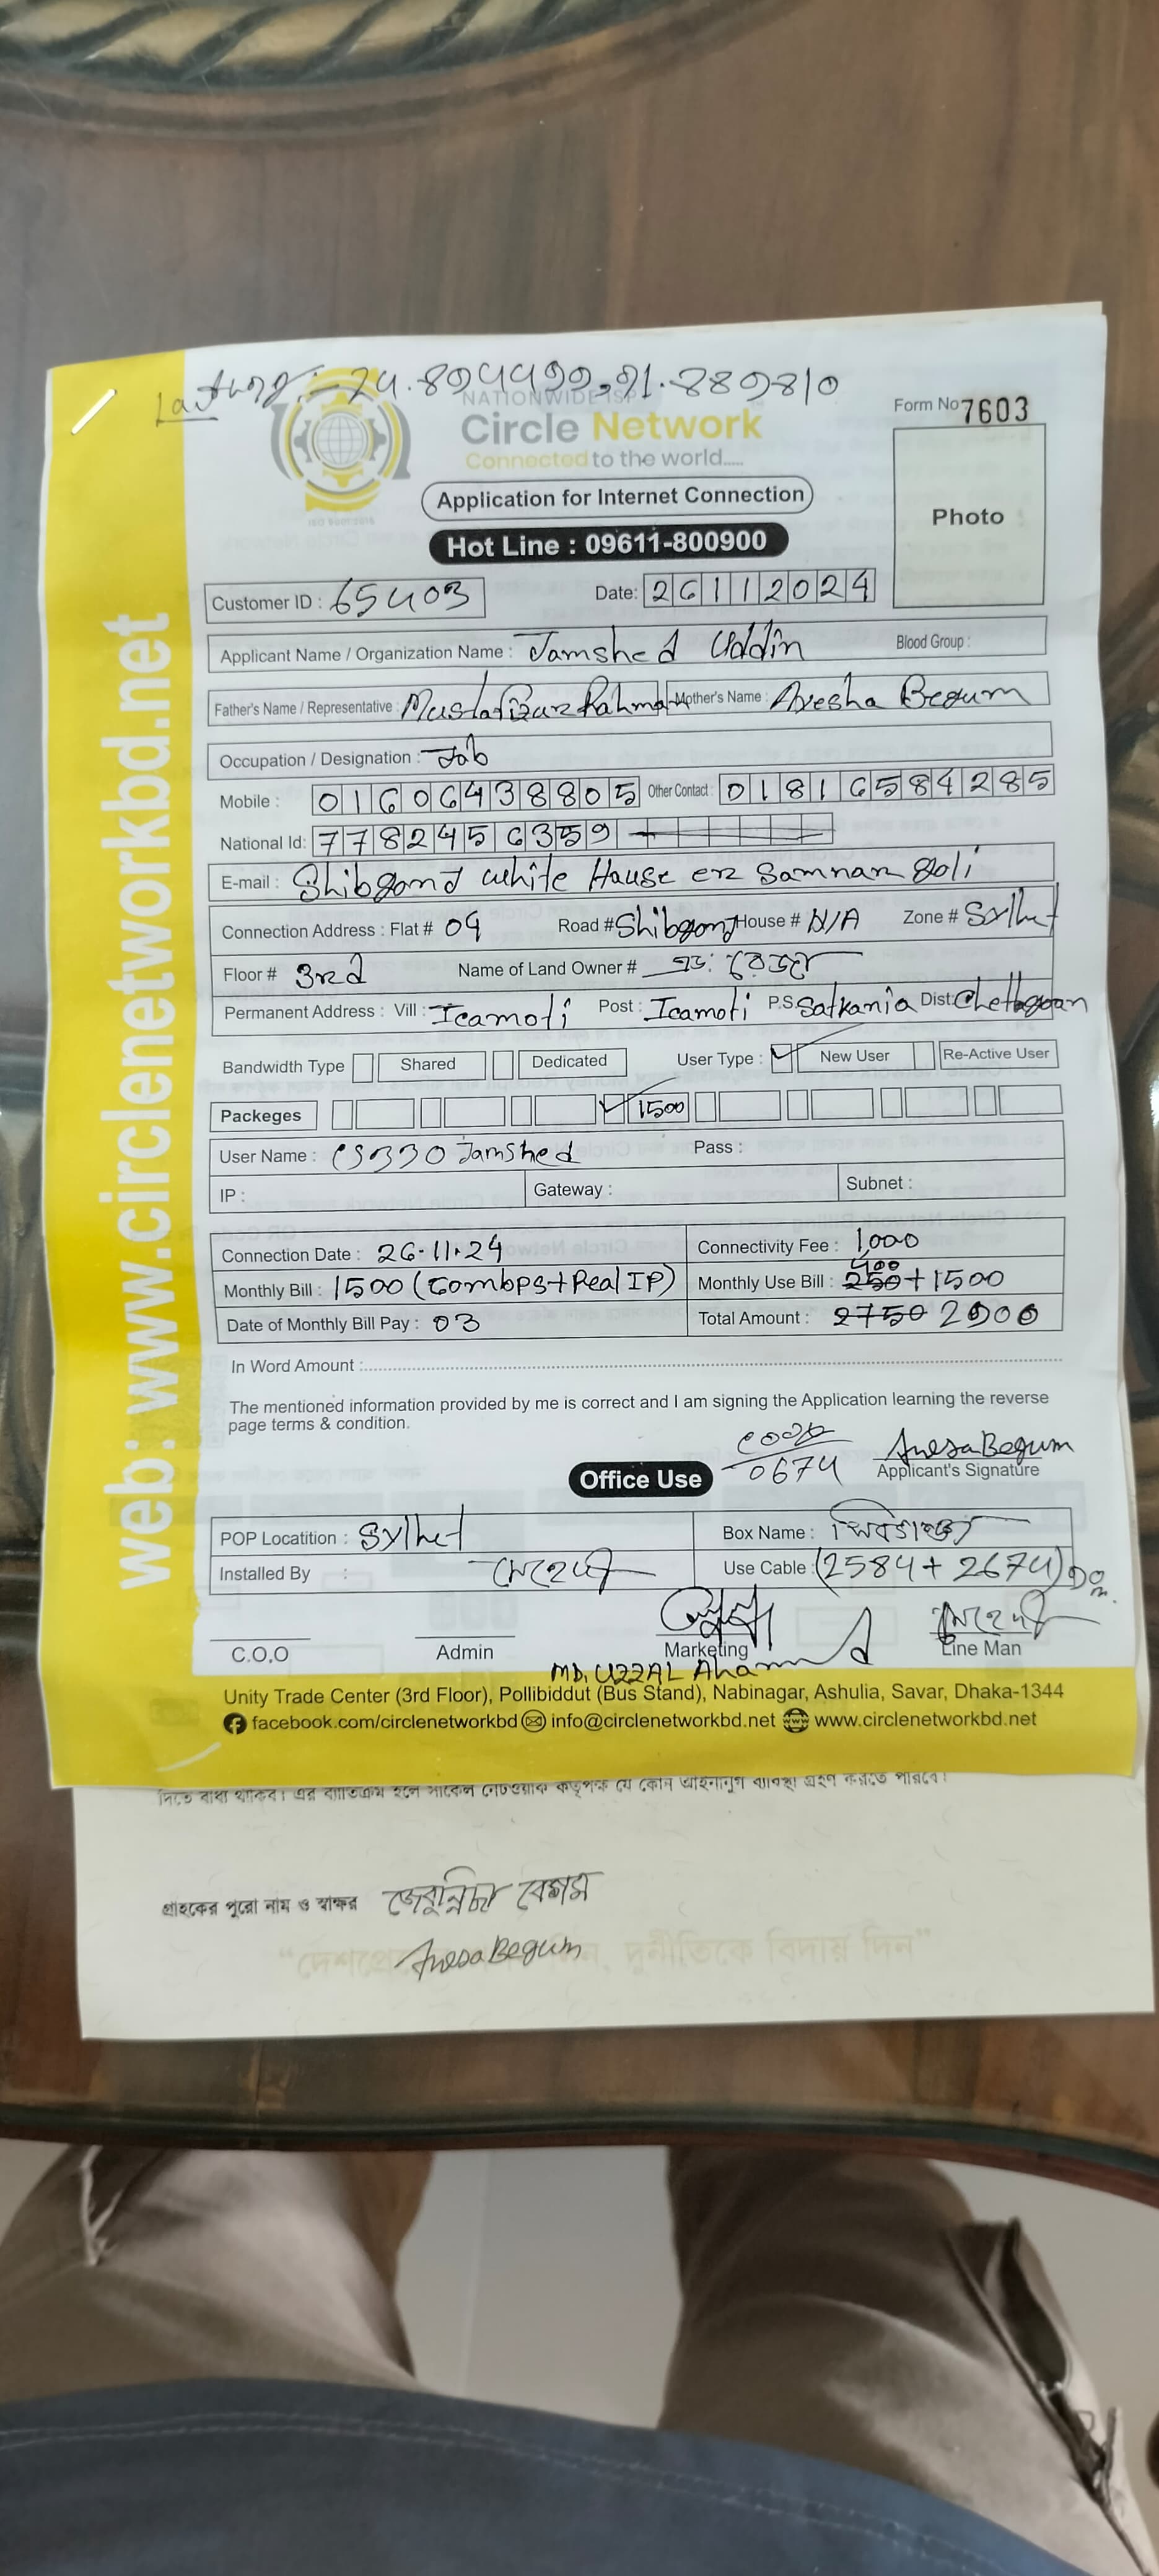 NATIONWIDE ISP
Form No 7603
Circle Network
Connected to the world.....
Photo
Application for Internet Connection
Hot Line : 09611-800900
Customer ID : 65403
Date: 26112024
Applicant Name / Organization Name : Jamshed Uddin Blood Group :
Father's Name / Representative : Mustafizur Rahman Mother's Name : Ayesha Begum
Occupation / Designation : Job
Mobile : 01606438805 Other Contact : 01816584285
National Id: 7782456359
E-mail : Shibgond white House er Samnar goli
Connection Address : Flat # 04 Road # Shibgong House # N/A Zone # Sylhet
Floor # 3rd Name of Land Owner #
Permanent Address : Vill : Icamoti Post : Icamoti P.S. Satkania Dist:
Bandwidth Type Shared Dedicated User Type : New User Re-Active User
Packeges 1500
User Name : Jamshed Pass :
IP : Gateway : Subnet :
Connection Date : 26-11-24 Connectivity Fee : 1,000
Monthly Bill : 1500 (60mbps+Real IP) Monthly Use Bill : 250 400 +1500
Date of Monthly Bill Pay : 03 Total Amount : 2750
In Word Amount :
The mentioned information provided by me is correct and I am signing the Application learning the reverse
page terms & condition.
0674
Applicant's Signature
Office Use
POP Locatition : Sylhet Box Name :
Installed By : Use Cable : (2584+2674)
C.O,O Admin Marketing Line Man
MD. UZZAL
Unity Trade Center (3rd Floor), Pollibiddut (Bus Stand), Nabinagar, Ashulia, Savar, Dhaka-1344
facebook.com/circlenetworkbd info@circlenetworkbd.net www.circlenetworkbd.net
web: www.circlenetworkbd.net
গ্রাহকের পুরো নাম ও স্বাক্ষর জেবুন্নিছা বেগম
Begum